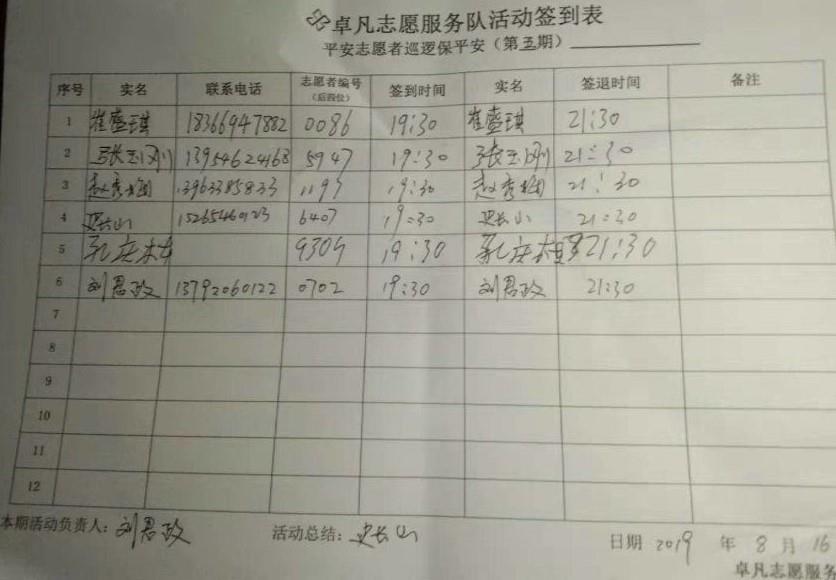 卓凡志愿服务队活动签到表
平安志愿者巡逻保平安（第五期）
序号 实名 联系电话 志愿者编号（后四位） 签到时间 实名 签退时间 备注
1 崔盛琪 18366947882 0086 19:30 崔盛琪 21:30
2 张玉刚 13954624168 5947 19:30 张玉刚 21:30
3 赵秀梅 13963385833 19:30 赵秀梅 21:30
4 史长山 6407 19:30 史长山 21:30
5 孔庆 9309 19:30 孔庆 21:30
6 刘恩政 13792060122 0702 19:30 刘恩政 21:30
7
8
9
10
11
12
本期活动负责人：刘恩政 活动总结：史长山
日期 2019 年 8 月 16
卓凡志愿服务